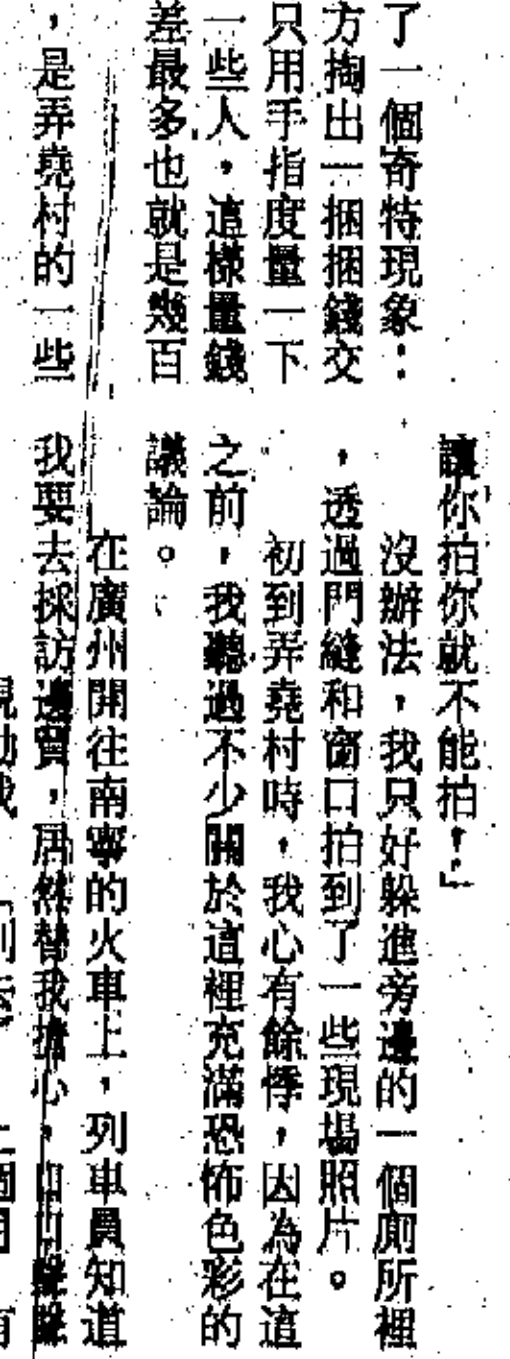 了一個奇特現象：
方掏出一捆捆錢交
只用手指度量一下
一些人，這樣量錢
差最多也就是幾百
，是弄堯村的一些
讓你拍你就不能拍！」
沒辦法，我只好躲進旁邊的一個廁所裡
，透過門縫和窗口拍到了一些現場照片。
初到弄堯村時，我心有餘悸，因為在這
之前，我聽過不少關於這裡充滿恐怖色彩的
議論。
在廣州開往南寧的火車上，列車員知道
我要去採訪邊貿，居然替我擔心，口口聲聲